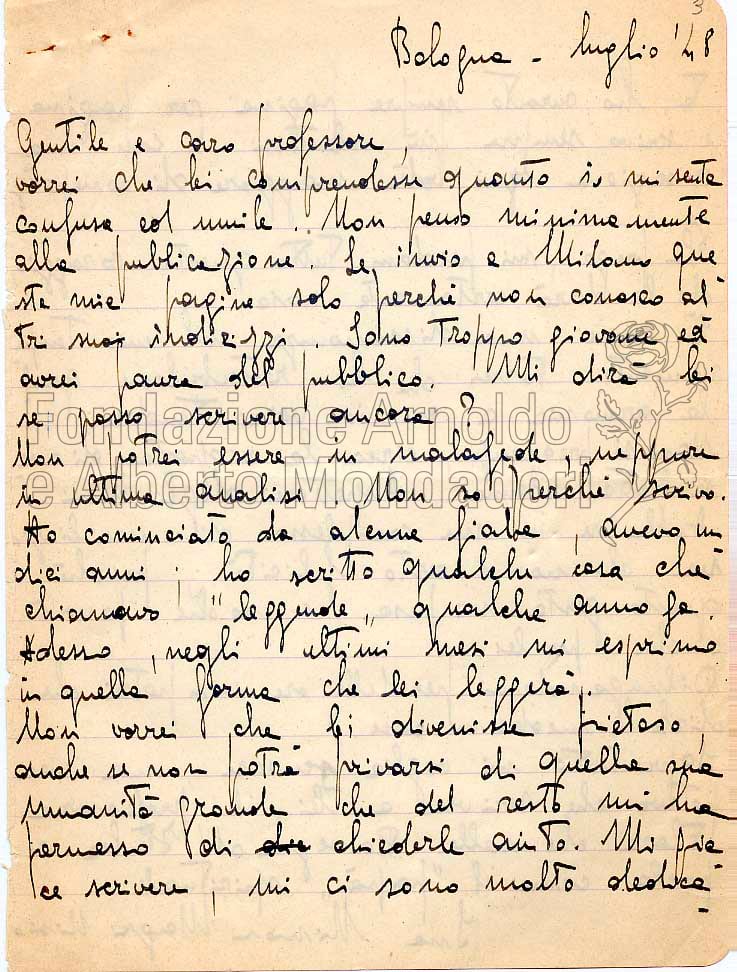 3
Bologna - luglio '48
Gentile e caro professore,
vorrei che lei comprendesse quanto io mi senta
confusa ed umile. Non penso minimamente
alla pubblicazione. Le invio a Milano que
ste mie pagine solo perché non conosco al
tri suoi indirizzi. Sono troppo giovane ed
avrei paura del pubblico. Mi dirà lei
se posso scrivere ancora?
Non potrei essere in malafede, neppure
in ultima analisi. Non so perché scrivo.
Ho cominciato da alcune fiabe, avevo un
dici anni; ho scritto qualche cosa che
chiamavo "leggende" qualche anno fa.
Adesso, negli ultimi mesi mi esprimo
in quella forma che lei leggerà.
Non vorrei che lei divenisse pietoso,
anche se non potrà privarsi di quella sua
umanità grande che del resto mi ha
permesso di chiederle aiuto. Mi pia
ce scrivere, mi ci sono molto dedica
Fondazione Arnoldo
e Alberto Mondadori